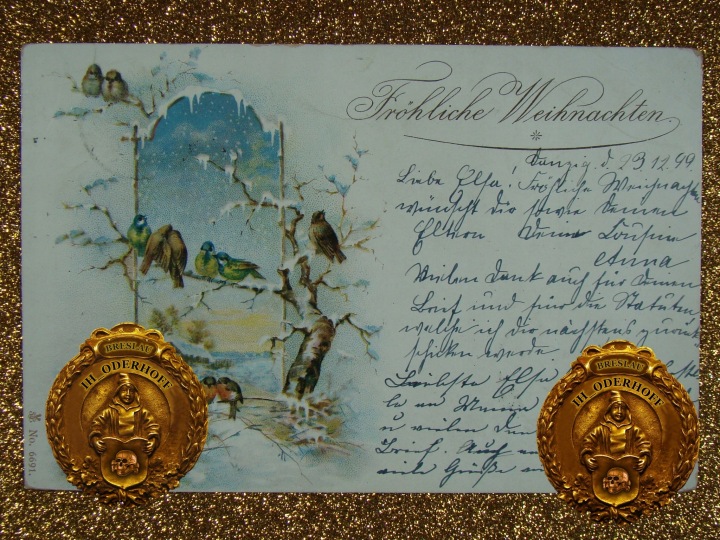 Fröhliche Weihnachten
Danzig, d. 23.12.99
Liebe Elsa! Fröhliche Weihnachten
wünscht dir sowie deinen
Eltern Deine Cousine
Anna
Vielen Dank auch für deinen
Brief und für die Statuten
welche ich dir nächstens zurück
schicken werde.
Elsa
u vielen
Brief. Auf
viele Grüße
No. 6691.
BRESLAU
III. ODERHOFF
BRESLAU
III. ODERHOFF